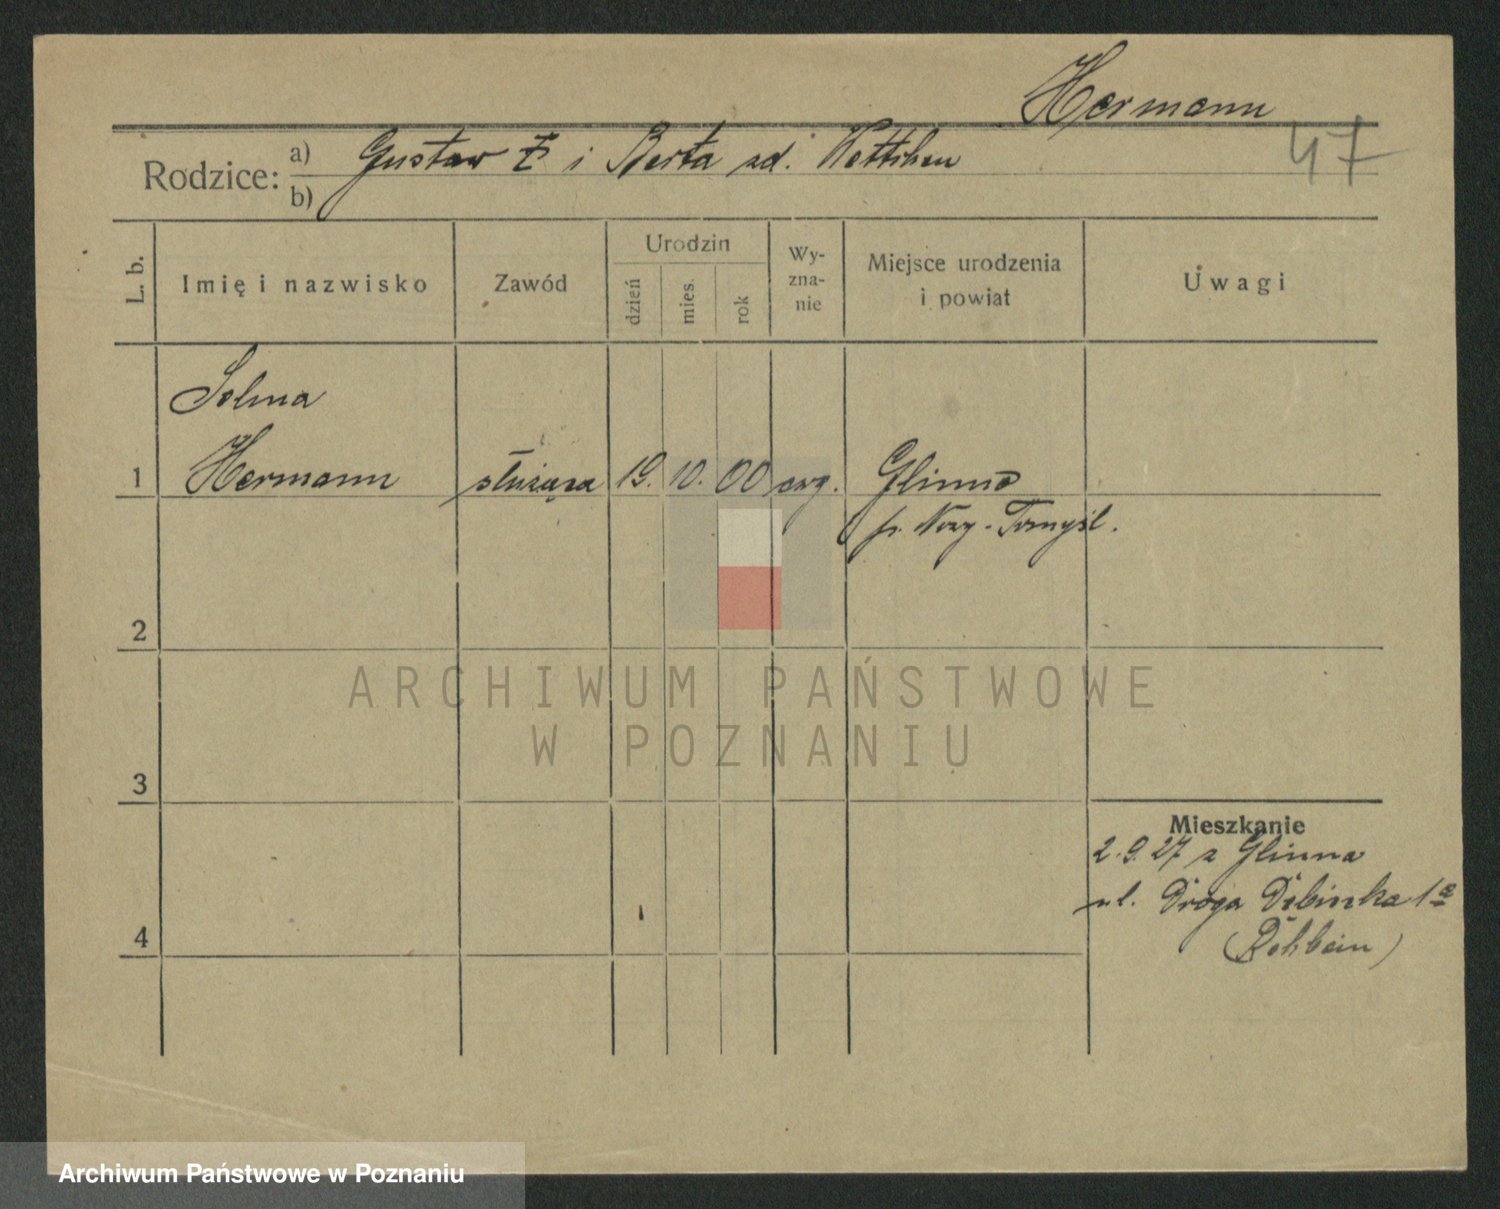 Hermann
47
Rodzice: a) Gustaw i Berta zd.
b)
L. b.
Imię i nazwisko
Zawód
Urodzin
dzień
mies.
rok
Wy-
zna-
nie
Miejsce urodzenia
i powiat
Uwagi
Selma
1 Hermann służąca 19. 10. 00 ewg. Glinno
p. Nowy-Tomyśl.
2
ARCHIWUM PAŃSTWOWE
W POZNANIU
3
Mieszkanie
2.9.27 z Glinna
ul. Droga Dębinska 1a
4
Archiwum Państwowe w Poznaniu